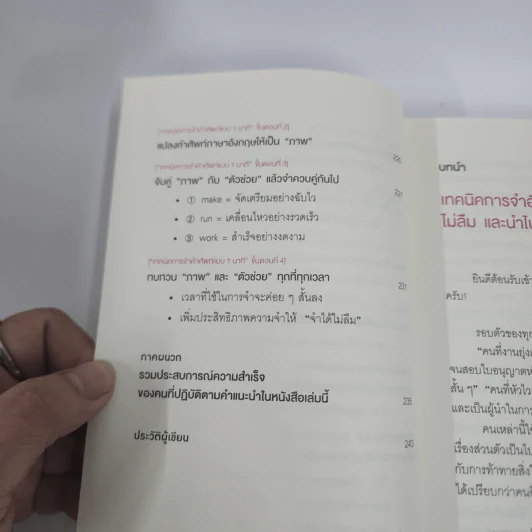 ["เทคนิคการจำคำศัพท์แบบ 1 นาที" ขั้นตอนที่ 2]
แปลงคำศัพท์ภาษาอังกฤษให้เป็น "ภาพ"
["เทคนิคการจำคำศัพท์แบบ 1 นาที" ขั้นตอนที่ 3]
จับคู่ "ภาพ" กับ "ตัวช่วย" แล้วจำควบคู่กันไป
• ① make = จัดเตรียมอย่างฉับไว
• ② run = เคลื่อนไหวอย่างรวดเร็ว
• ③ work = สำเร็จอย่างงดงาม
["เทคนิคการจำคำศัพท์แบบ 1 นาที" ขั้นตอนที่ 4]
ทบทวน "ภาพ" และ "ตัวช่วย" ทุกที่ทุกเวลา 231
• เวลาที่ใช้ในการจำจะค่อย ๆ สั้นลง
• เพิ่มประสิทธิภาพความจำให้ "จำได้ไม่ลืม"
ภาคผนวก
รวมประสบการณ์ความสำเร็จ
ของคนที่ปฏิบัติตามคำแนะนำในหนังสือเล่มนี้ 235
ประวัติผู้เขียน 243
บทนำ
เทคนิคการจำ
ไม่ลืม และนำไป
ยินดีต้อนรับเข้า
ครับ!
รอบตัวของทุก
"คนที่งานยุ่ง
จนสอบใบอนุญาต
สั้น ๆ" "คนที่หัวไว
และเป็นผู้นำในการ
คนเหล่านี้ใช้
เรื่องส่วนตัวเป็นไป
กับการท้าทายสิ่ง
ได้เปรียบกว่าคน